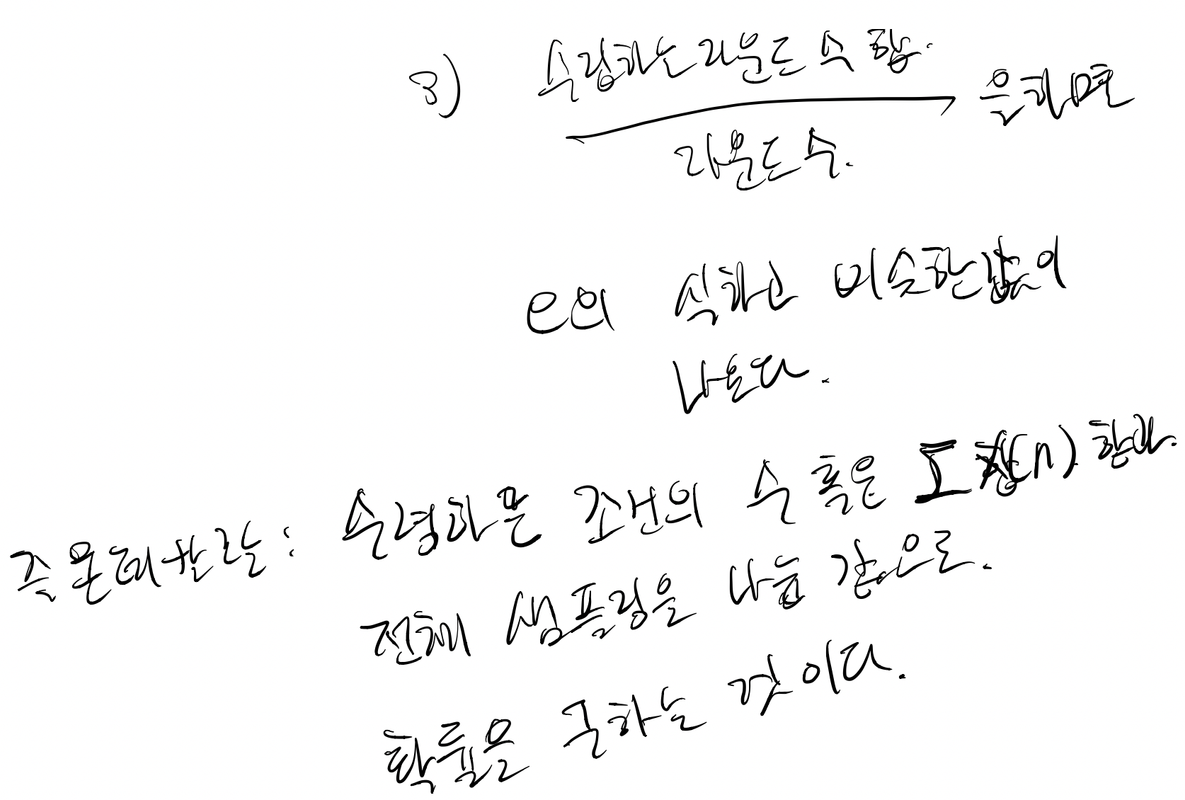 3) 수렴하는 라운드 수 합. 을 하면
라운드 수.
e의 식하고 비슷한 값이
나온다.
즉 몬테카를로: 수렴하는 조건의 수 혹은 (n) 한다.
전체 샘플링을 나눈 값으로.
확률을 구하는 것이다.